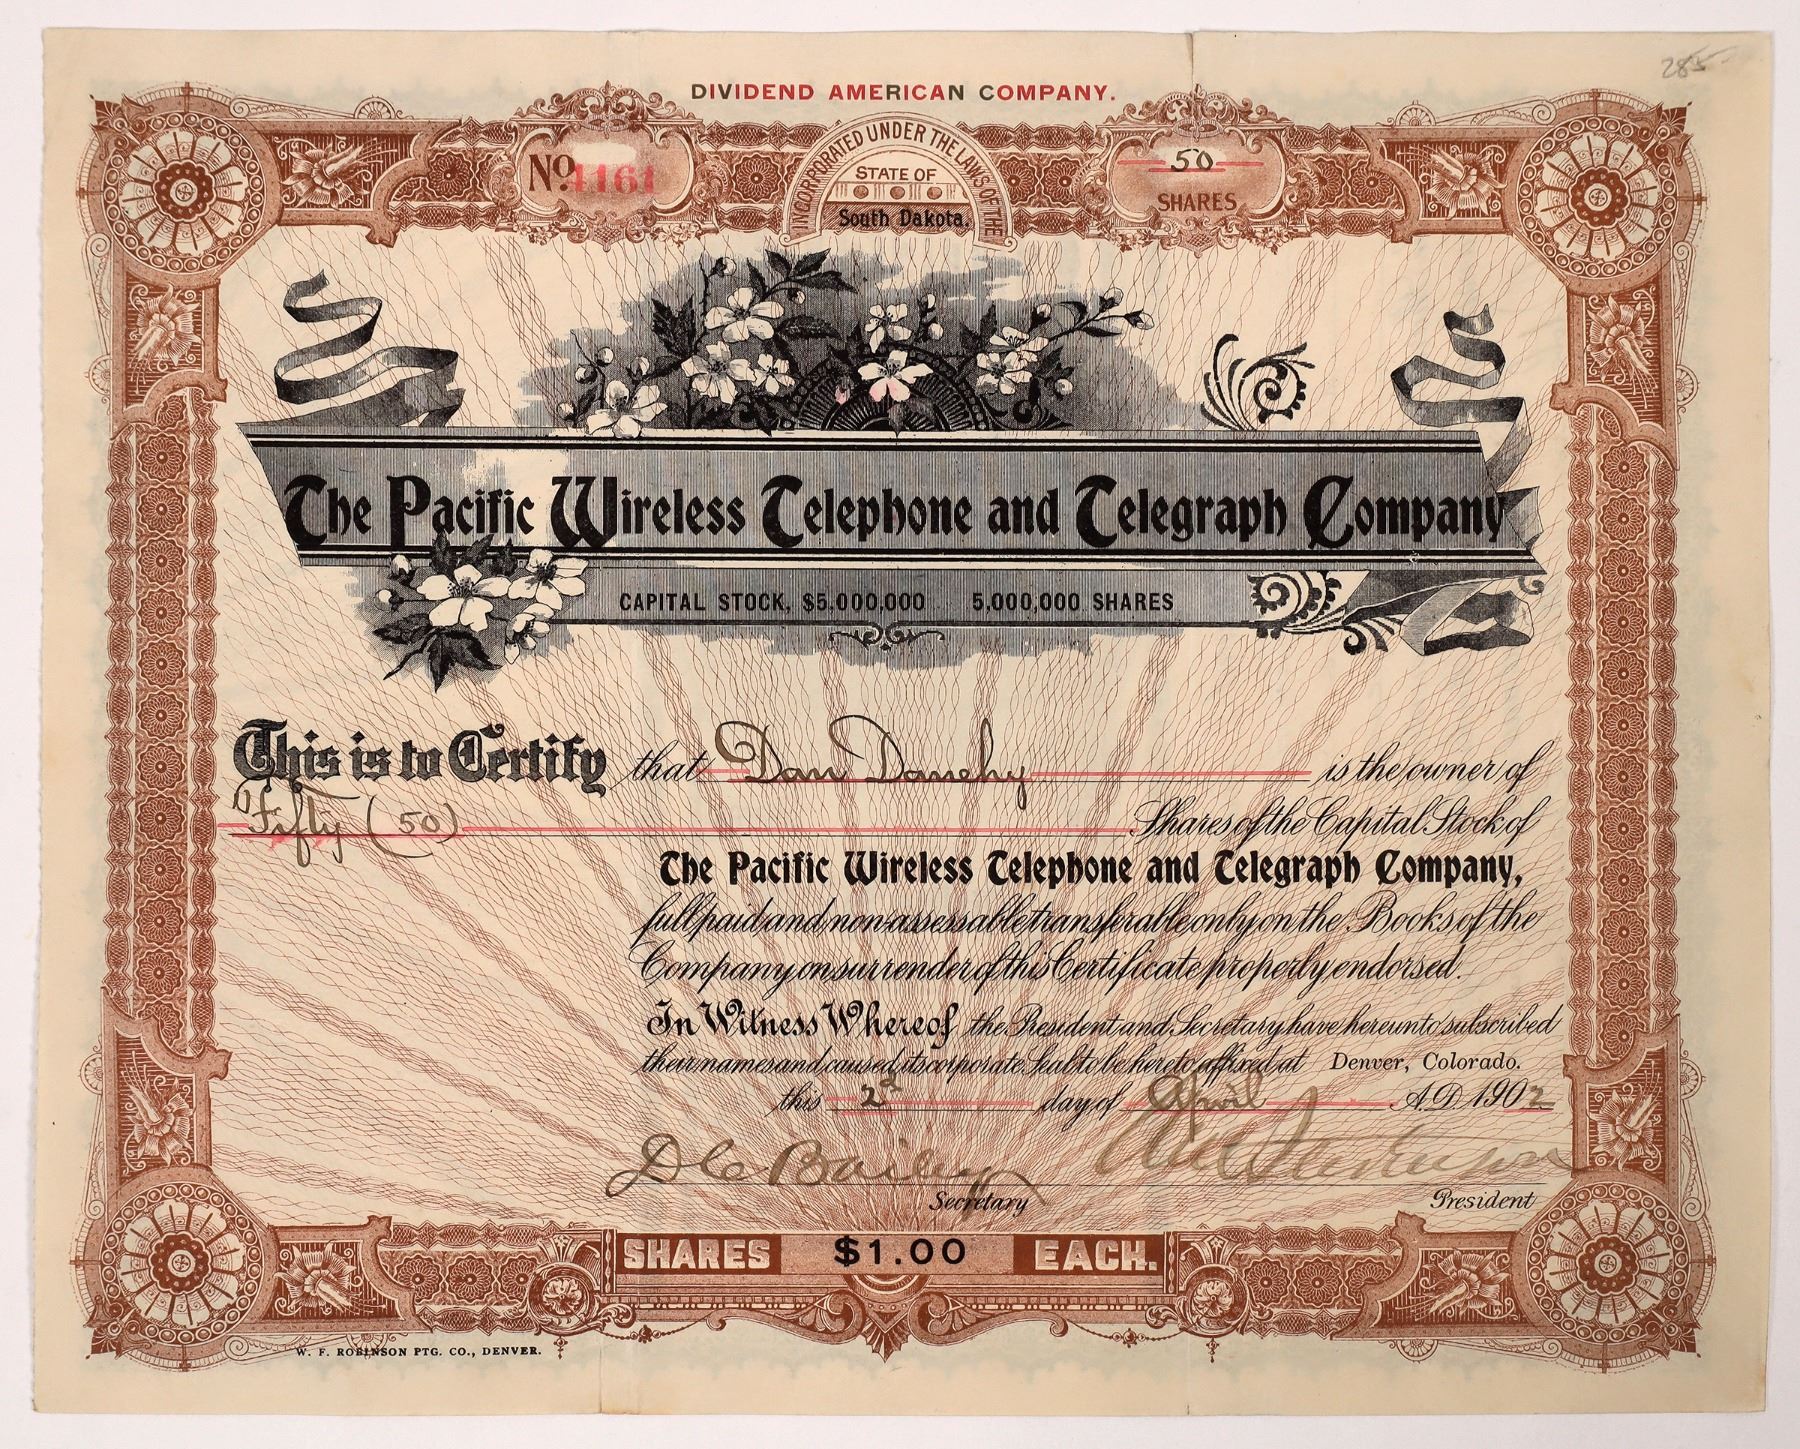 285
DIVIDEND AMERICAN COMPANY.
No. 1161
INCORPORATED UNDER THE LAWS OF THE
STATE OF
South Dakota.
50
SHARES
The Pacific Wireless Telephone and Telegraph Company
CAPITAL STOCK, $5.000,000 5,000,000 SHARES
This is to Certify that Dan Danehy is the owner of
Fifty (50) Shares of the Capital Stock of
The Pacific Wireless Telephone and Telegraph Company,
full paid and non-assessable transferable only on the Books of the
Company on surrender of this Certificate properly endorsed.
In Witness Whereof the President and Secretary have hereunto subscribed
their names and caused its corporate Seal to be hereto affixed at Denver, Colorado.
this 2d day of April A.D. 1902
Bailey
Secretary President
SHARES $1.00 EACH.
W. F. ROBINSON PTG. CO., DENVER.